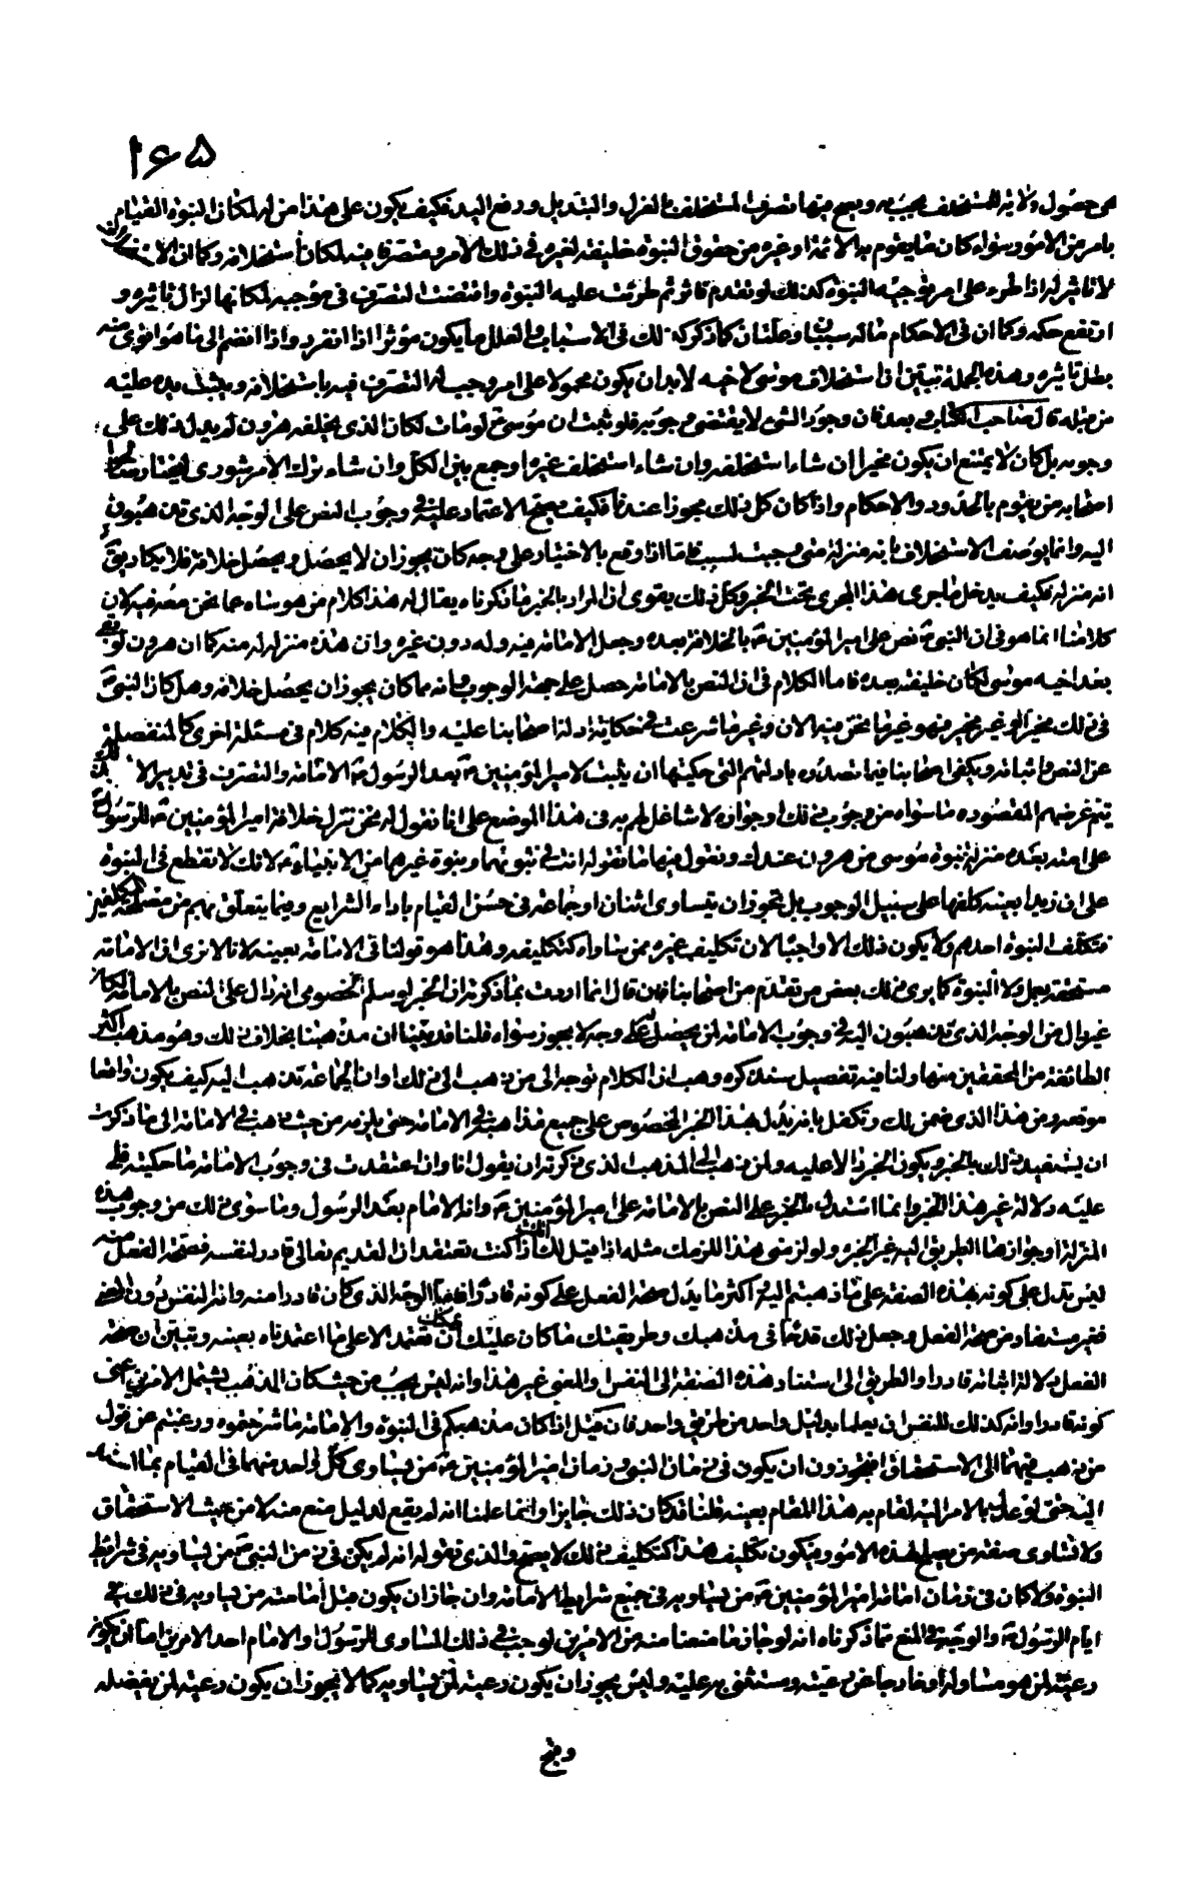 ١٦٥
في حصول ولاية المستخلف يجب به ويصح منها تصرف المستخلف بالعزل والتبديل ورفع اليد فكيف يكون على هذا من له لمكان النبوة القيام
بامر من الامور سواه كان مما يقوم به الائمة او غيره من حقوق النبوة خليفة لغيره في ذلك الامر ومتصرفا فيه لمكان استخلافه وكما ان الاستخلاف
لا تاثير له اذا طرء على امر يوجبه النبوة كذلك لو تقدم تاثيره ثم طرئت عليه النبوة واقتضت التصرف في موجبه لمكانها لزال تاثيره و
ارتفع حكمه وكما ان في الاحكام ما له سببان وعلتان كما ذكر كذلك في الاسباب والعلل ما يكون مؤثرا اذا انفرد واذا انضم الى ما هو اقوى منه
بطل تاثيره وهذه الجملة تبين ان استخلاف موسى لاخيه لا بد ان يكون محمولا على امر وجب له التصرف فيه باستخلافه ويثبت يده عليه
من قبله قال صاحب الكتاب وبعد فان وجود الشيء لا يقتضي وجوبه فلو ثبت ان موسى ع لو مات لكان الذي يخلفه هرون لم يدل ذلك على
وجوبه بل كان لا يمتنع ان يكون مخيرا ان شاء استخلفه وان شاء استخلف غيره او جمع بين الكل وان شاء ترك الامر شورى ليختار صالحوا
اصحابه من يقوم بالحدود والاحكام واذا كان كل ذلك مجوزا عندنا فكيف يصح الاعتماد عليه في وجوب النص على الوجه الذي تذهبون
اليه وانما يوصف الاستخلاف بانه منزلة متى وجبت لسبب فاما اذا وقع بالاختيار على وجه كان يجوز ان لا يحصل ويحصل خلافه فلا يكاد يق
انه منزلة فكيف يدخل ما جرى هذا المجرى تحت الخبر وكل ذلك يقوى ان المراد بالخبر ما ذكرناه يقال له هذا كلام من هو ساه عما نحن مصرفيه لان
كلامنا انما هو في ان النبي ص نص على امير المؤمنين ع بالخلافة بعده وجعل الامامة فيه وله دون غيره وان هذه منزلة له منه كما ان هرون لو بقي
بعد اخيه موسى لكان خليفته بعده فاما الكلام في ان النص بالامامة حصل على جهة الوجوب وانه مما كان يجوز ان يحصل خلافه وهل كان النبي ص
في ذلك مخيرا او غير مخير فهو غير ما نحن فيه الان وغير ما شرعت في حكاية ادلة اصحابنا عليه والكلام فيه كلام في مسئلة اخرى كالمنفصلة
عن النص واثباته ويكفي اصحابنا فيما تصدوه بادلتهم التي حكيتها ان يثبت لامير المؤمنين ع بعد الرسول ص الامامة والتصرف في تدبير الامة لان
يتم غرضهم المقصود وما سواه من وجوب ذلك او جوازه لا شاغل لهم به في هذا الموضع على انا نقول له نحن ننزل خلافة امير المؤمنين ع للرسول ص
على امته بعده منزلة نبوة موسى من هرون عندك ونقول فيها ما تقوله انت في نبوتهما ونبوة غيرهما من الانبياء ع لانك لا تقطع في النبوة
على ان زيدا بعينه كلفها على سبيل الوجوب بل تجوز ان يتساوى اثنان او جماعة في حسن القيام باداء الشرايع وفيما يتعلق بهم من مصلحة المكلفين
فتكلف النبوة احدهم ولا يكون ذلك الا واجبا لان تكليف غيره ممن ساواه كتكليفه وهذا هو قولنا في الامامة بعينه لانا لا نرى ان الامامة
مستحقة بعمل ولا النبوة كما يرى ذلك بعض من تقدم من اصحابنا فان قال انما اردت بما ذكرته ان الخبر لو سلم لخصومي انه دال على النص بالامامة لكان
غير دال من الوجه الذي تذهبون اليه في وجوب الامامة لمن يحصل له على وجه لا يجوز سواه قلنا قد بينا ان مذهبنا بخلاف ذلك وهو مذهب اكثر
الطائفة من المحققين منها ولنا فيه تفصيل سنذكره وهب ان الكلام توجه الى من ذهب الى ذلك او ان الجماعة تذهب اليه كيف يكون واقعا
موقعه ومن هذا الذي ضمن لك وتكفل بانه يدل بهذا الخبر المخصوص على جميع مذاهبه في الامامة حتى يلزمه من حيث ذهب في الامامة الى ما ذكرت
ان يستفيد ذلك بالخبر ويكون الخبر دالا عليه ولمن ذهب الى المذهب الذي ذكرته ان يقول انا وان اعتقدت في وجوب الامامة ما حكيته فلي
عليه دلالة غير هذا الخبر وانما استدل بالخبر على النص بالامامة على امير المؤمنين ع وانه الامام بعد الرسول وما سوى ذلك من وجوب هذه
المنزلة او جوازها الطريق اليه غير الخبر ولو لزمني هذا للزمك مثله اذا قيل لك اذا كنت تعتقد ان القديم تعالى قادر لنفسه فصحة الفعل منه
ليس تدل على كونه بهذه الصفة على ما ذهبتم اليه اكثر ما يدل صحة الفعل على كونه قادرا فاما الوجه الذي كان قادرا منه وانه للنفس دون المعنى
فغير مستفاد من صحة الفعل وجعل ذلك قدحا في مذهبك وطريقتك ما كان يمكنك ان تعتمد الا على ما اعتمدناه بعينه وتبين ان صحة
الفعل دلالة اثباته قادرا والطريق الى استناد هذه الصفة الى النفس والمعنى غير هذا وانه ليس يجب من حيث كان المذهب يشتمل الامرين اعنى
كونه قادرا وانه كذلك للنفس ان يعلما بدليل واحد من طريق واحد فان قيل اذا كان مذهبكم في النبوة والامامة ما شرحتموه ورغبتم عن قول
من ذهب فيهما الى الاستحقاق افتجوزون ان يكون في زمان النبي وزمان امير المؤمنين ع من يساوى كل واحد منهما في القيام بما اسند
اليه حتى لو عدل بالامر اليه لقام به هذا المقام بعينه قلنا قد كان ذلك جايزا وانما علمنا انه لم يقع لدليل منع منه لا من حيث الاستحقاق
ولا تساوى صفة من يصلح لهذه الامور ويكون تكليف هذا كتكليف ذلك لا يصح والذي نقوله انه لم يكن في زمن النبي ص من يساويه في شرائط
النبوة ولا كان في زمان امامة امير المؤمنين ع من يساويه في جميع شرايط الامامة وان جاز ان يكون قبل امامته من يساويه في ذلك في
ايام الرسول ص والوجه في المنع مما ذكرناه انه لو جاز ما منعنا منه من الامرين لوجب في ذلك المساوى للرسول او الامام احد الامرين اما ان يكون
رعية لمن هو مساو له او خارجا عن رعيته ومستثنى به عليه وليس يجوز ان يكون رعية لمن يساويه كما لا يجوز ان يكون رعية لمن يفضله
وقبح